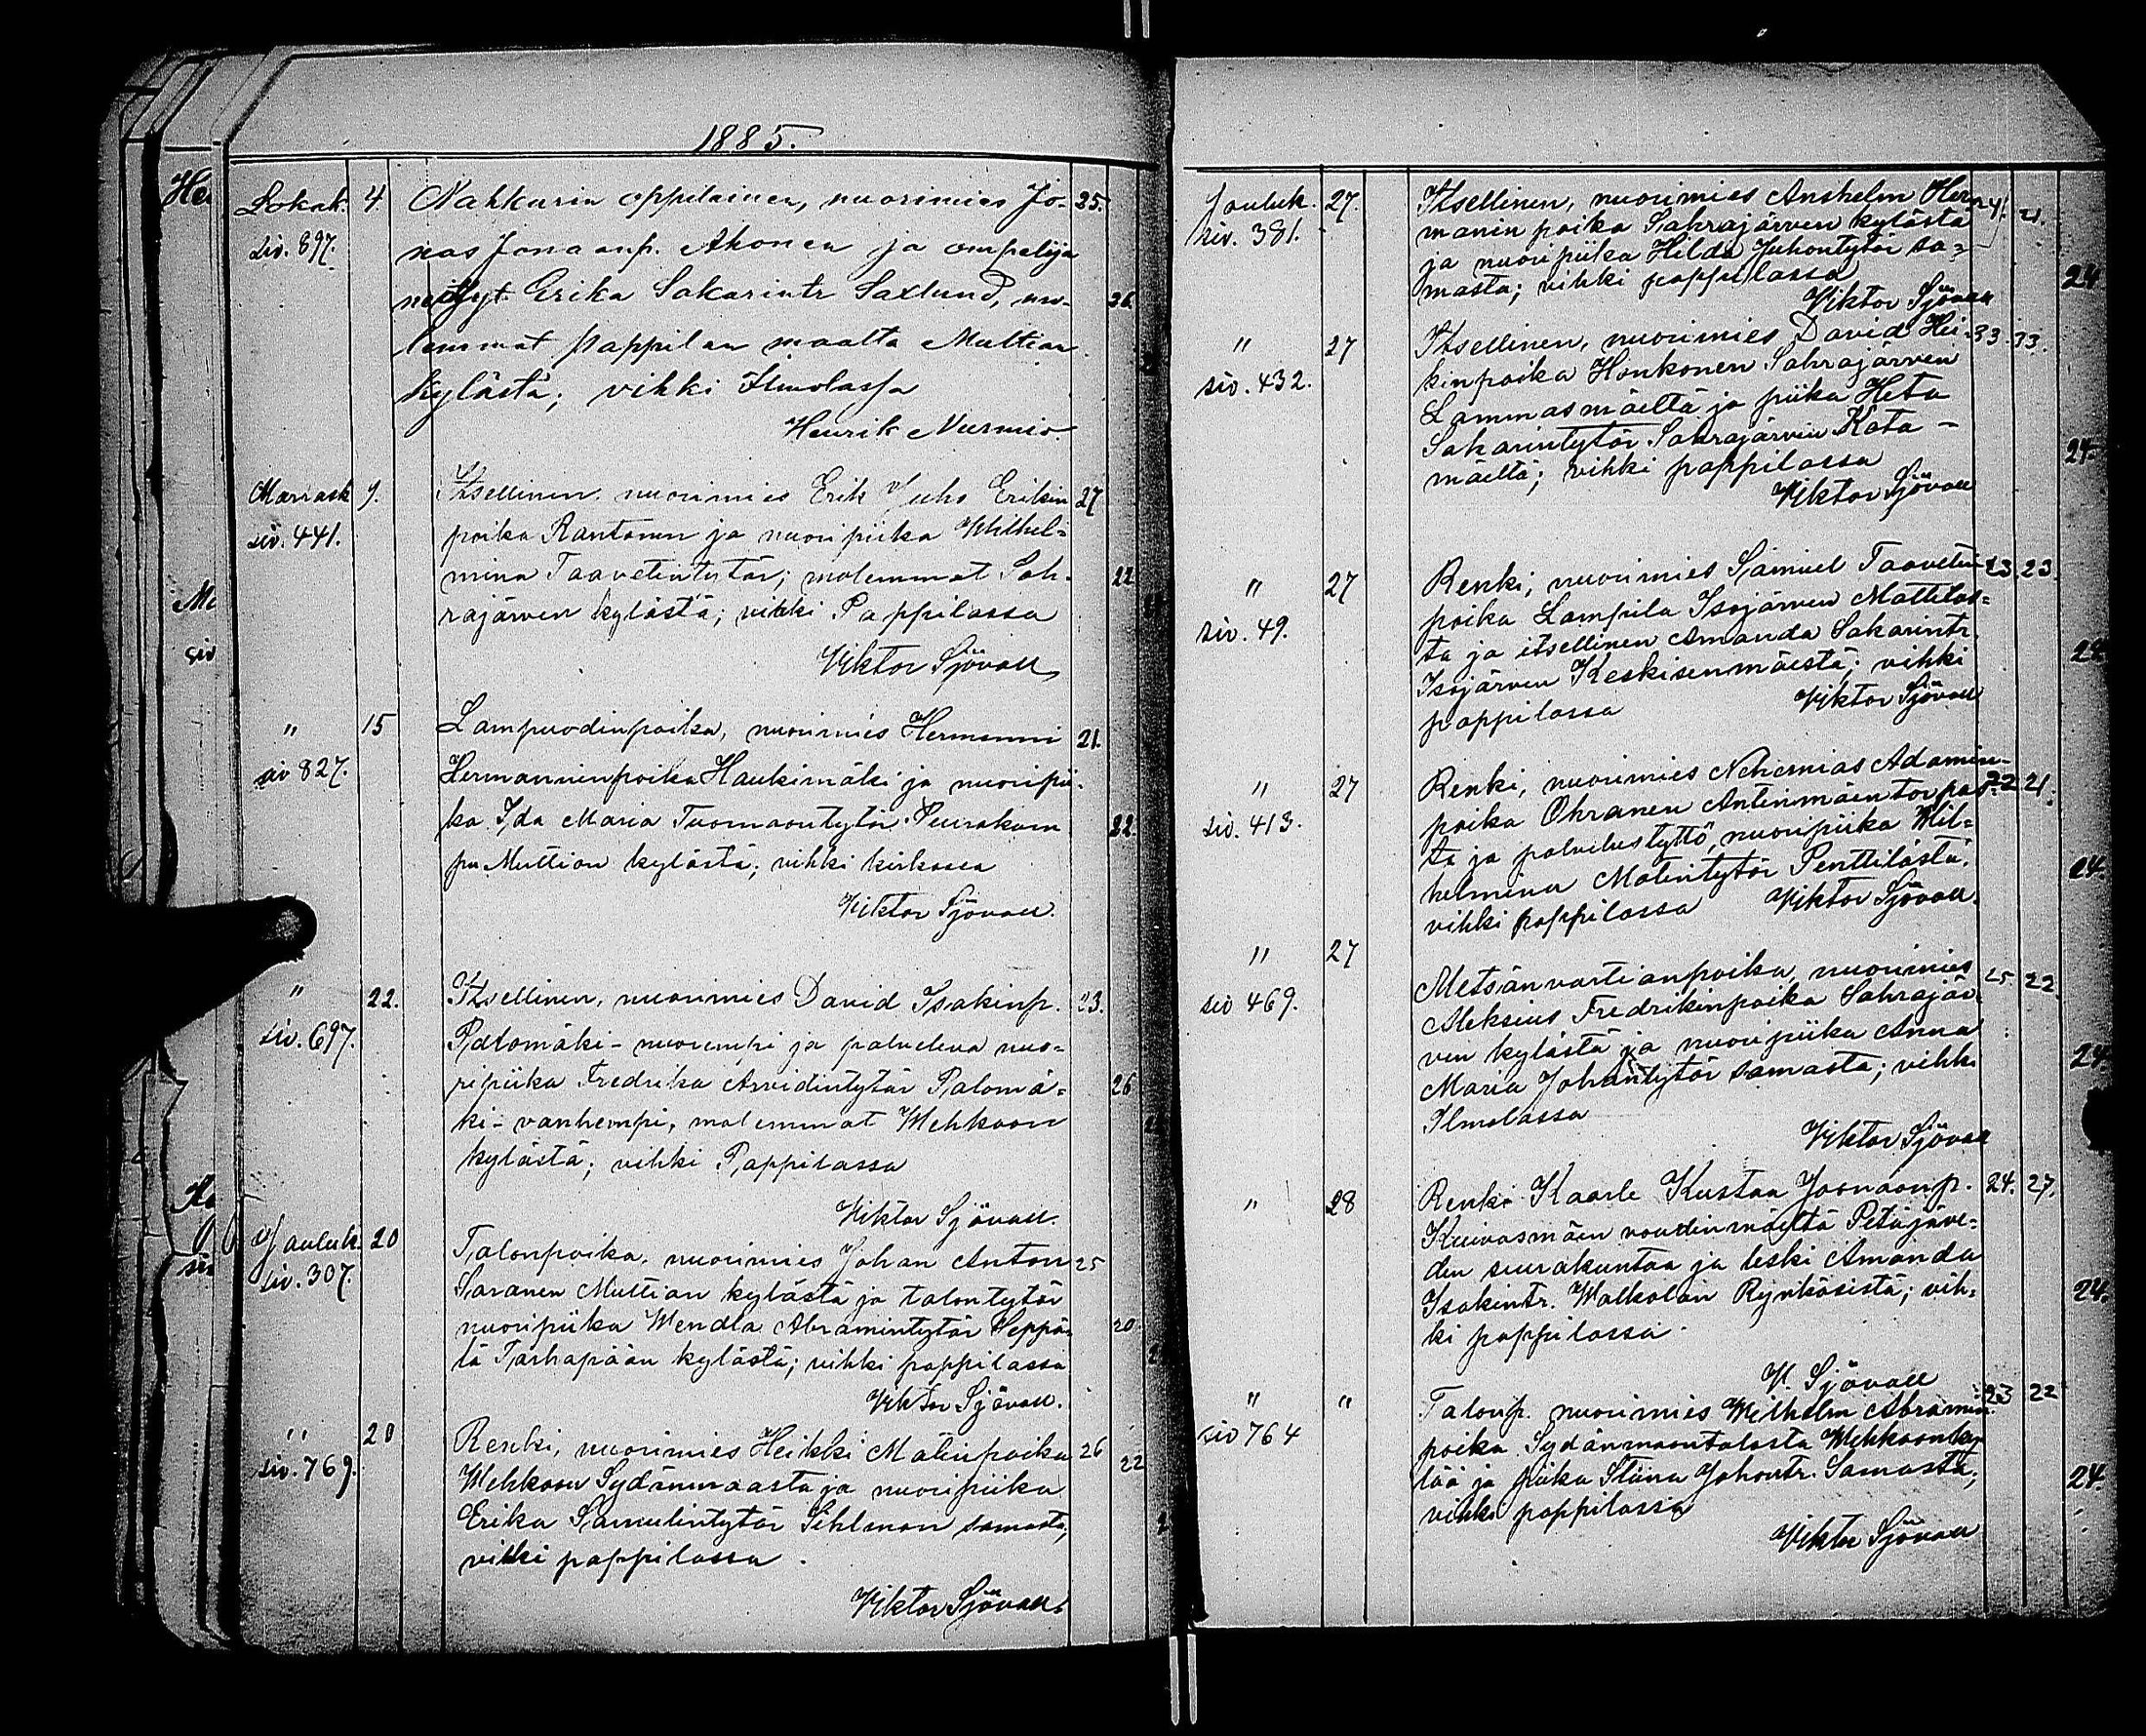 1885.
Lokak. 4 Nahkurin oppilainen, nuorimies Jo- 25.
siv. 897. nas Jonaanp. Akonen ja ompelija
neitsyt Erika Sakarintr Saxlund, mo- 36
lemmat Pappilan maalta Multian
kylästä; vihki Ilmolassa
Henrik Nurmio.
Marrask 9. Itsellinen nuorimies Erik Juho Erikin 27
siv. 441. poika Rantanen ja nuori piika Wilhel-
mina Taavetintytär; molemmat Sah- 22
rajärven kylästä; vihki Pappilassa
Viktor Sjövall
" 15 Lampuodinpoika, nuorimies Hermanni 21.
siv 827. Hermanninpoika Haukimäki ja nuoripii-
ka Ida Maria Tuomaantytär Peurakum 22.
pu Multian kylästä; vihki kirkossa
Viktor Sjövall.
" 22. Itsellinen, nuorimies David Isakinp. 23.
siv. 697. Palomäki-nuorempi ja palveleva nuo-
ripiika Fredrika Arvidintytär Palomä- 26
ki-vanhempi, molemmat Wehkoon
kylästä; vihki Pappilassa
Viktor Sjövall.
Jouluk. 20 Talonpoika, nuorimies Johan Anton 25
siv. 307. Saranen Multian kylästä ja talontytär
nuoripiika Wendla Abramintytär Heppä- 20
lä Tarhapään kylästä; vihki pappilassa
Viktor Sjövall.
" 20 Renki, nuorimies Heikki Matinpoika 26
siv. 769. Wehkoon Sydänmaasta ja nuoripiika 22
Erika Samulintytär Sihlman samasta;
vihki pappilassa.
Viktor Sjövall.
Jouluk. 27. Itsellinen, nuorimies Anshelm Her- 21. 21.
siv. 381. manin poika Sahrajärven kylästä
ja nuori piika Hilda Juhontytär sa-
masta; vihki pappilassa 24
Viktor Sjövall
" 27 Itsellinen, nuorimies David Hei- 33. 33.
siv. 432. kinpoika Honkonen Sahrajärven
Lammasmäeltä ja piika Heta
Sakarintytär Sahrajärven Kata- 24
mäeltä; vihki pappilassa
Viktor Sjövall
" 27 Renki, nuorimies Samuel Taavetin 23. 23.
siv. 49. poika Lampila Isojärven Mattilas-
ta ja itsellinen Amanda Sakarintr. 28
Isojärven Keskisenmäestä; vihki
pappilassa Viktor Sjövall
" 27 Renki, nuorimies Nehemias Adamin- 22 21.
siv. 413. poika Ohranen Antinmäen torpas-
ta ja palvelustyttö, nuoripiika Wil-
helmina Matintytär Penttilästä. 24.
vihki pappilassa Viktor Sjövall.
" 27 Metsänvartianpoika, nuorimies 25 22
siv 469. Aleksius Fredrikinpoika Sahrajär-
ven kylästä ja nuori piika Anna
Maria Johantytär samasta; vihki 24
Ilmolassa
Viktor Sjövall
" 28 Renki Kaarle Kustaa Joonaanp. 24. 27.
Kuivasmäen voudinmäeltä Petäjäve-
den seurakuntaa ja leski Amanda
Isakintr. Walkolan Rynkäsistä; vih- 24.
ki pappilassa.
V. Sjövall
" " Talonp. nuorimies Wilhelm Abramin- 23 22
siv 764 poika Sydänmaantalosta Wehkoonky-
lää ja piika Stiina Johontr. Samasta; 24.
vihki pappilassa
Viktor Sjövall